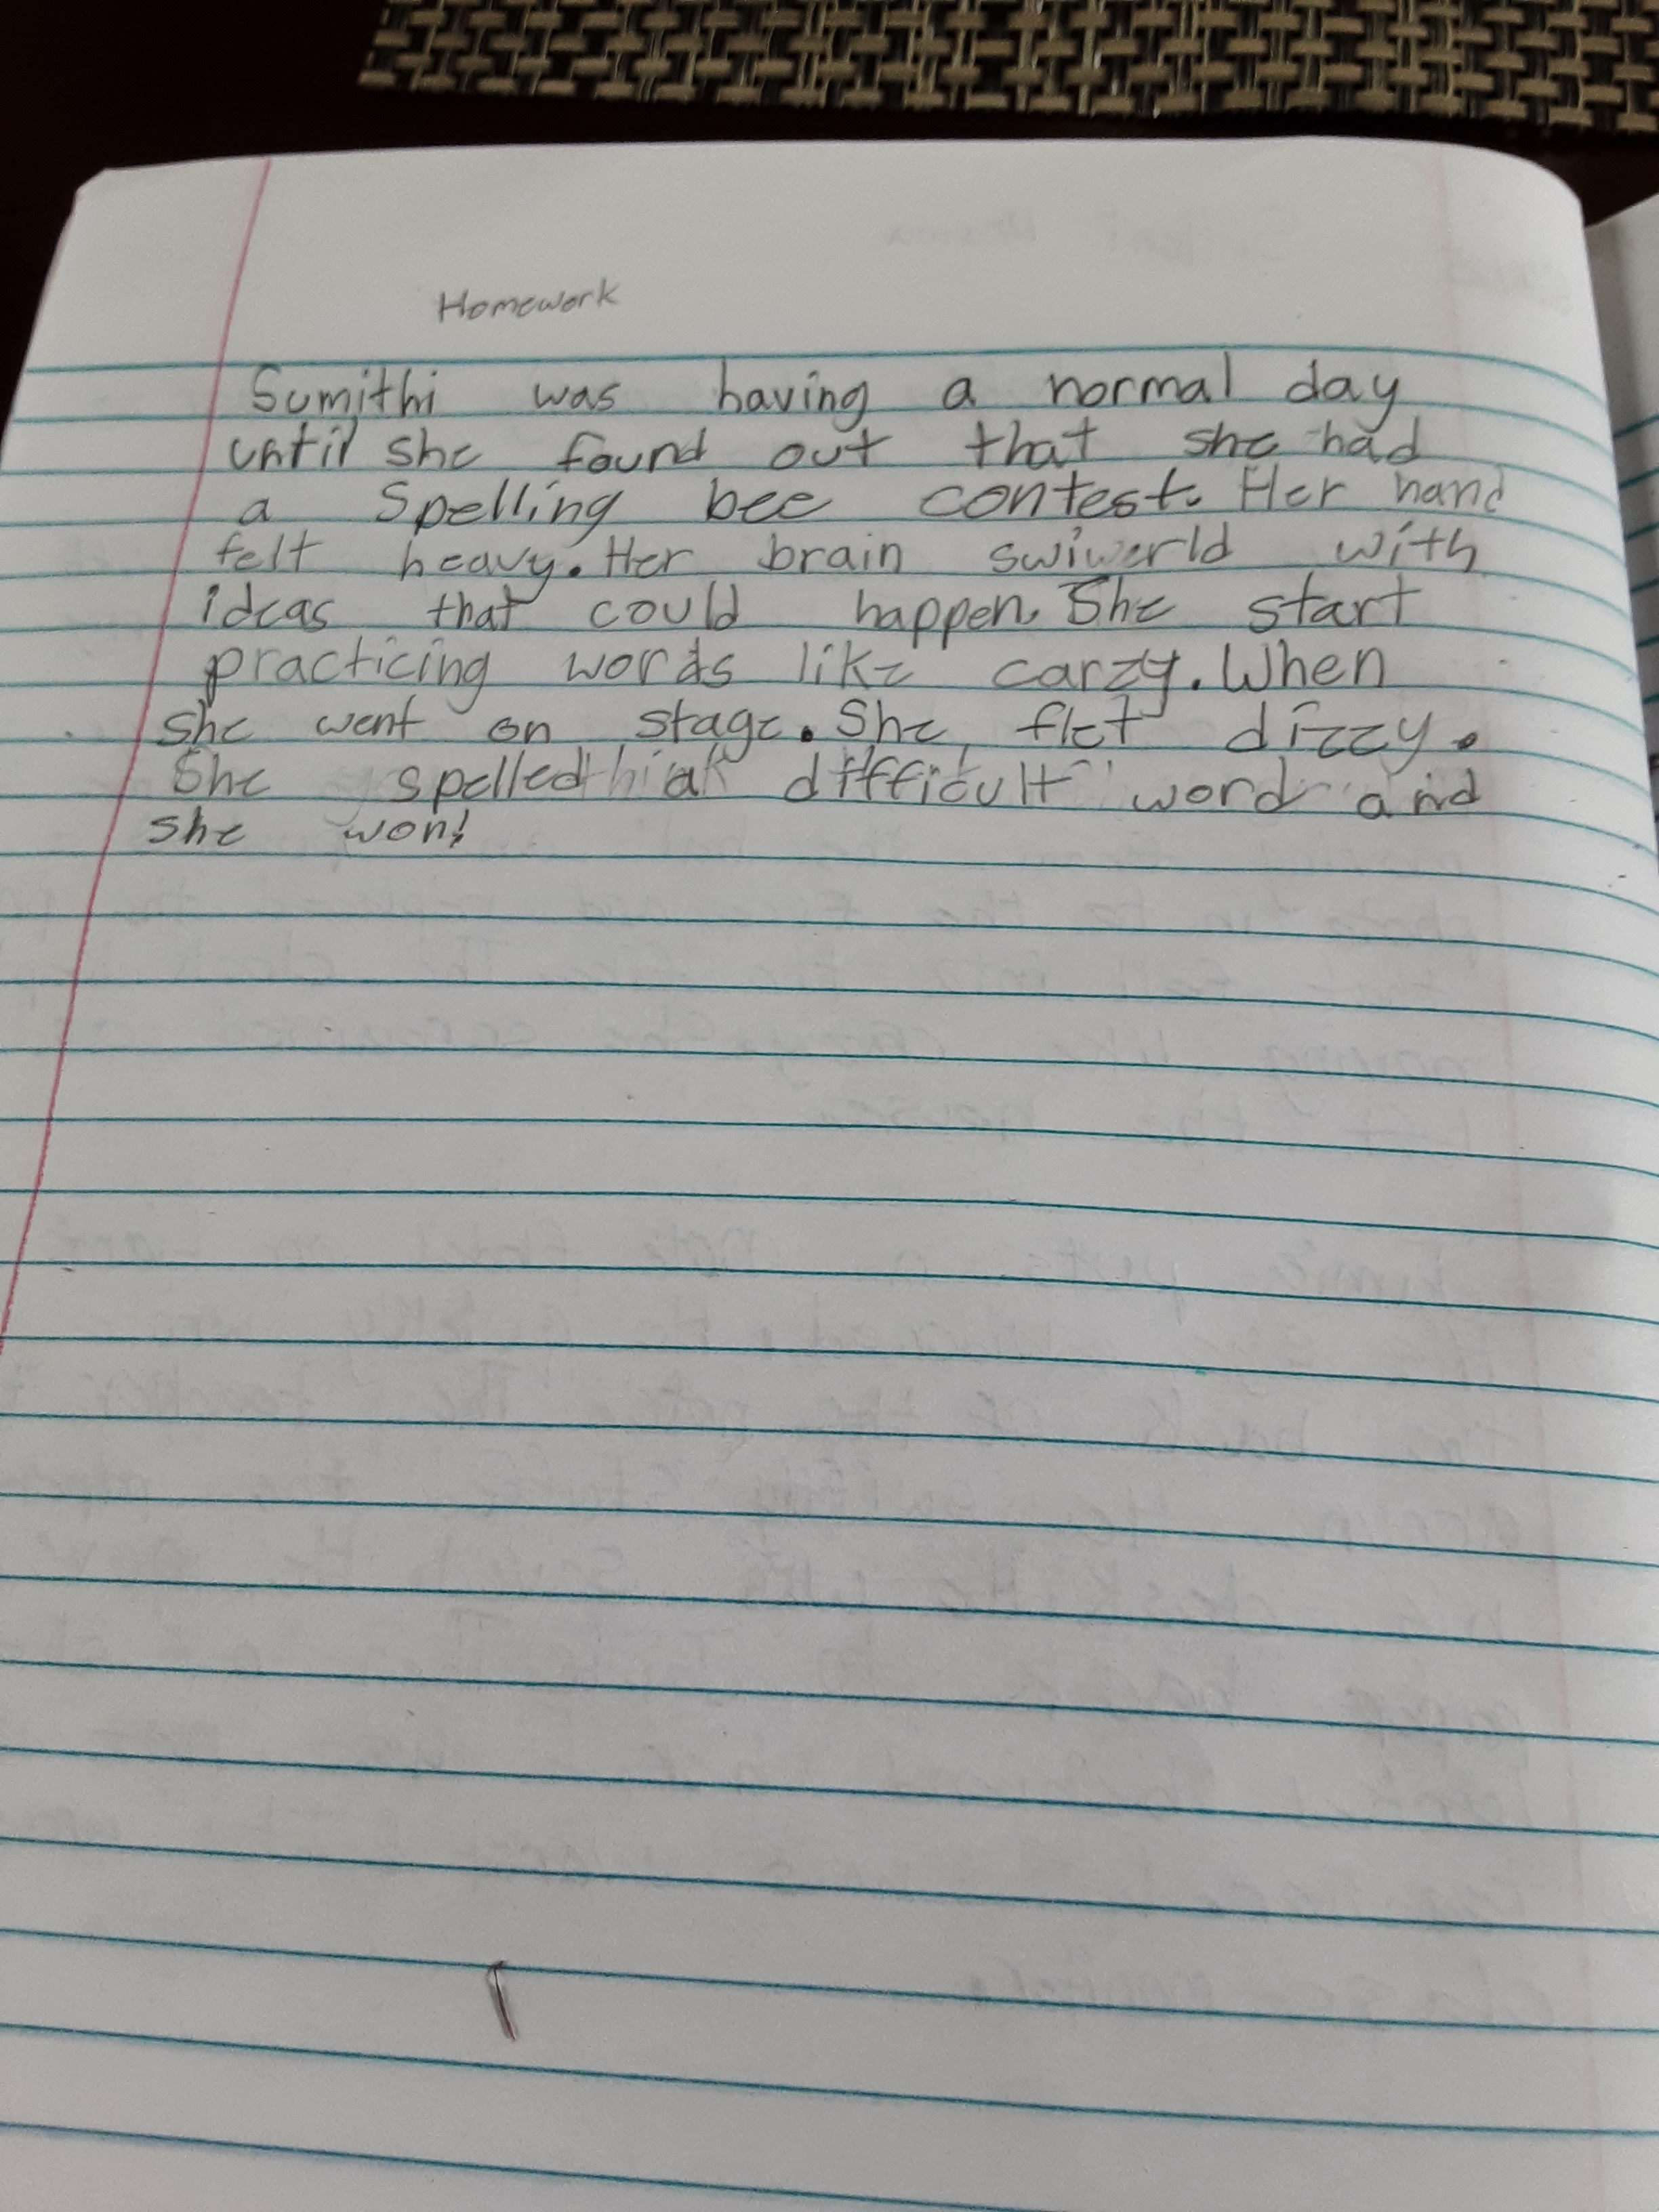 Homework
Sumithi was having a normal day
until she found out that she had
a Spelling bee contest. Her hand
felt heavy. Her brain swiwerld with
ideas that could happen. She start
practicing words like carzy. When
she went on stage. She flet dizzy.
She spelled a difficult word and
she won!